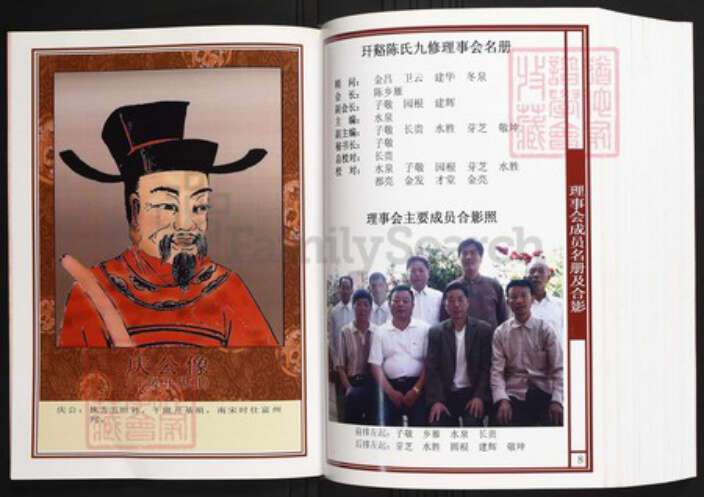 庆公像
玕谿陈氏九修理事会名册
顾 问： 金昌 卫云 建华 冬泉
会 长： 陈乡雁
副会长： 子敬 园根 建辉
主 编： 水泉
副主编： 子敬 长贵 水胜 芽芝 敬坤
秘书长： 子敬
总校对： 长贵
校 对： 水泉 子敬 园根 芽芝 水胜
都亮 金发 才堂 金亮
理事会主要成员合影照
FamilySearch
前排左起：子敬 乡雁 水泉 长贵
后排左起：芽芝 水胜 园根 建辉 敬坤
理事会成员名册及合影
8